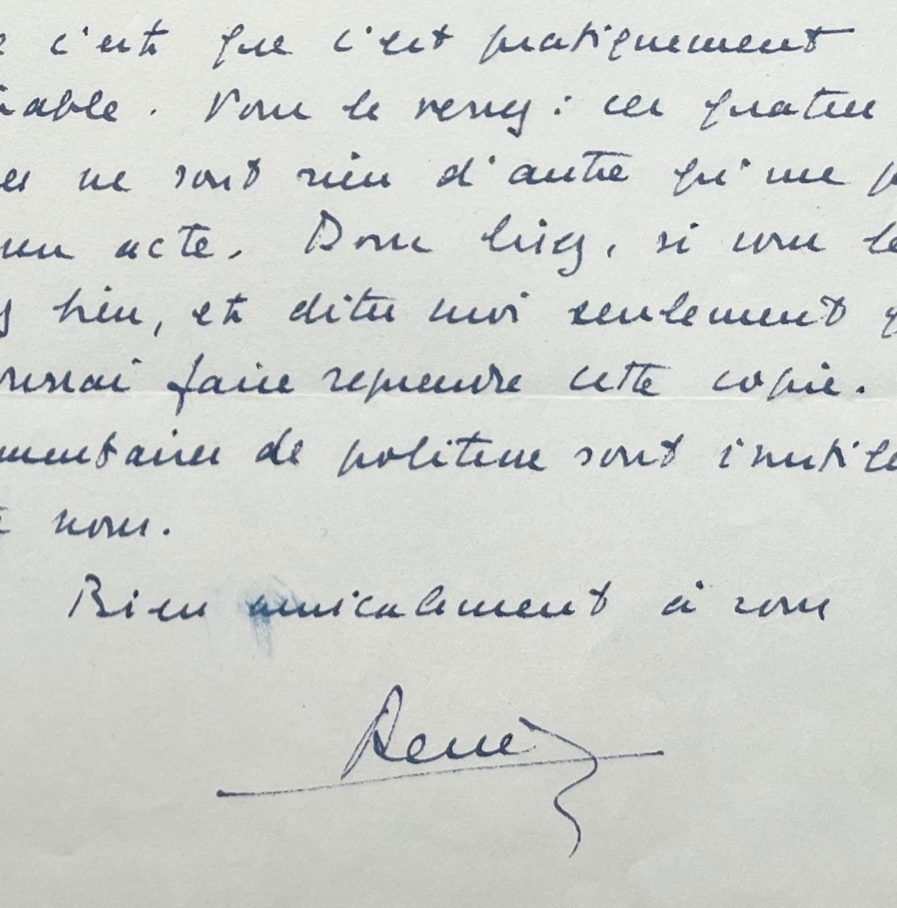 c'est que c'est pratiquement
able. Vous le verrez : ces quatre
es ne sont rien d'autre qu'une p
un acte. Donc lisez, si vous le
z bien, et dites moi seulement q
ourrai faire reprendre cette copie.
mentaires de politesse sont inutile
nous.
Bien amicalement à vous
René